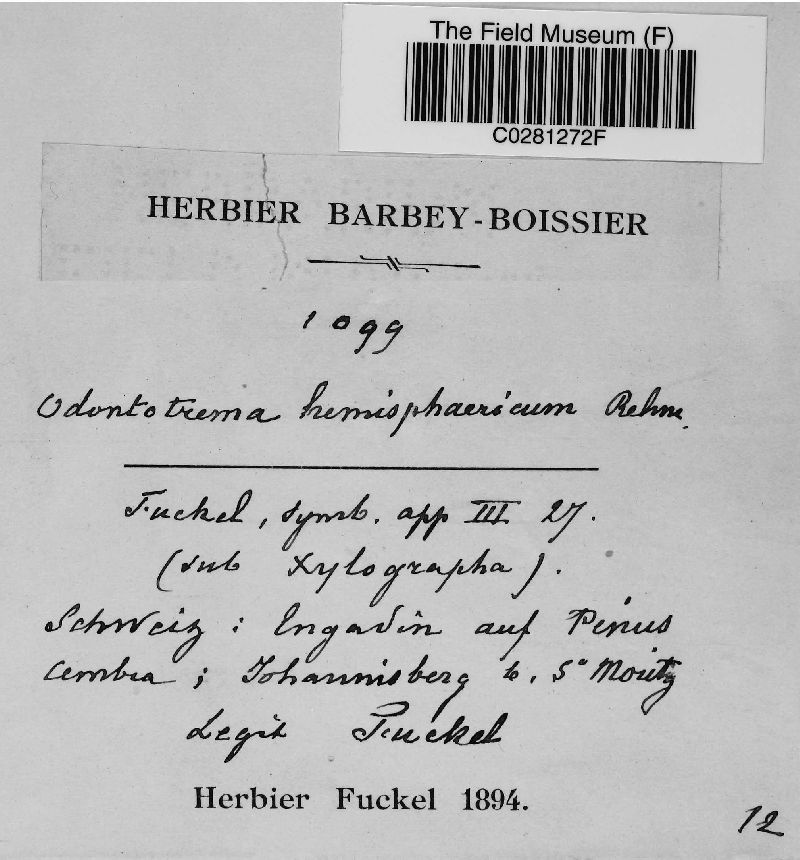 The Field Museum (F)
C0281272F
HERBIER BARBEY-BOISSIER
1099
Odontotrema hemisphaericum Rehm.
Fuckel, symb. app III 27.
(sub Xylographa).
Schweiz: Engadin auf Pinus
Cembra; Johannisberg b. St Moritz
Legit Fuckel
Herbier Fuckel 1894.
12